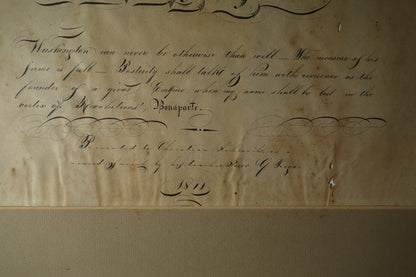 Washington can never be otherwise than well — The measure of his
fame is full — Posterity shall talk of him with reverence as the
founder of a great Empire when my name shall be lost in the
vortex of Revolutions! Bonaparte.
Presented by Christian
by
1811